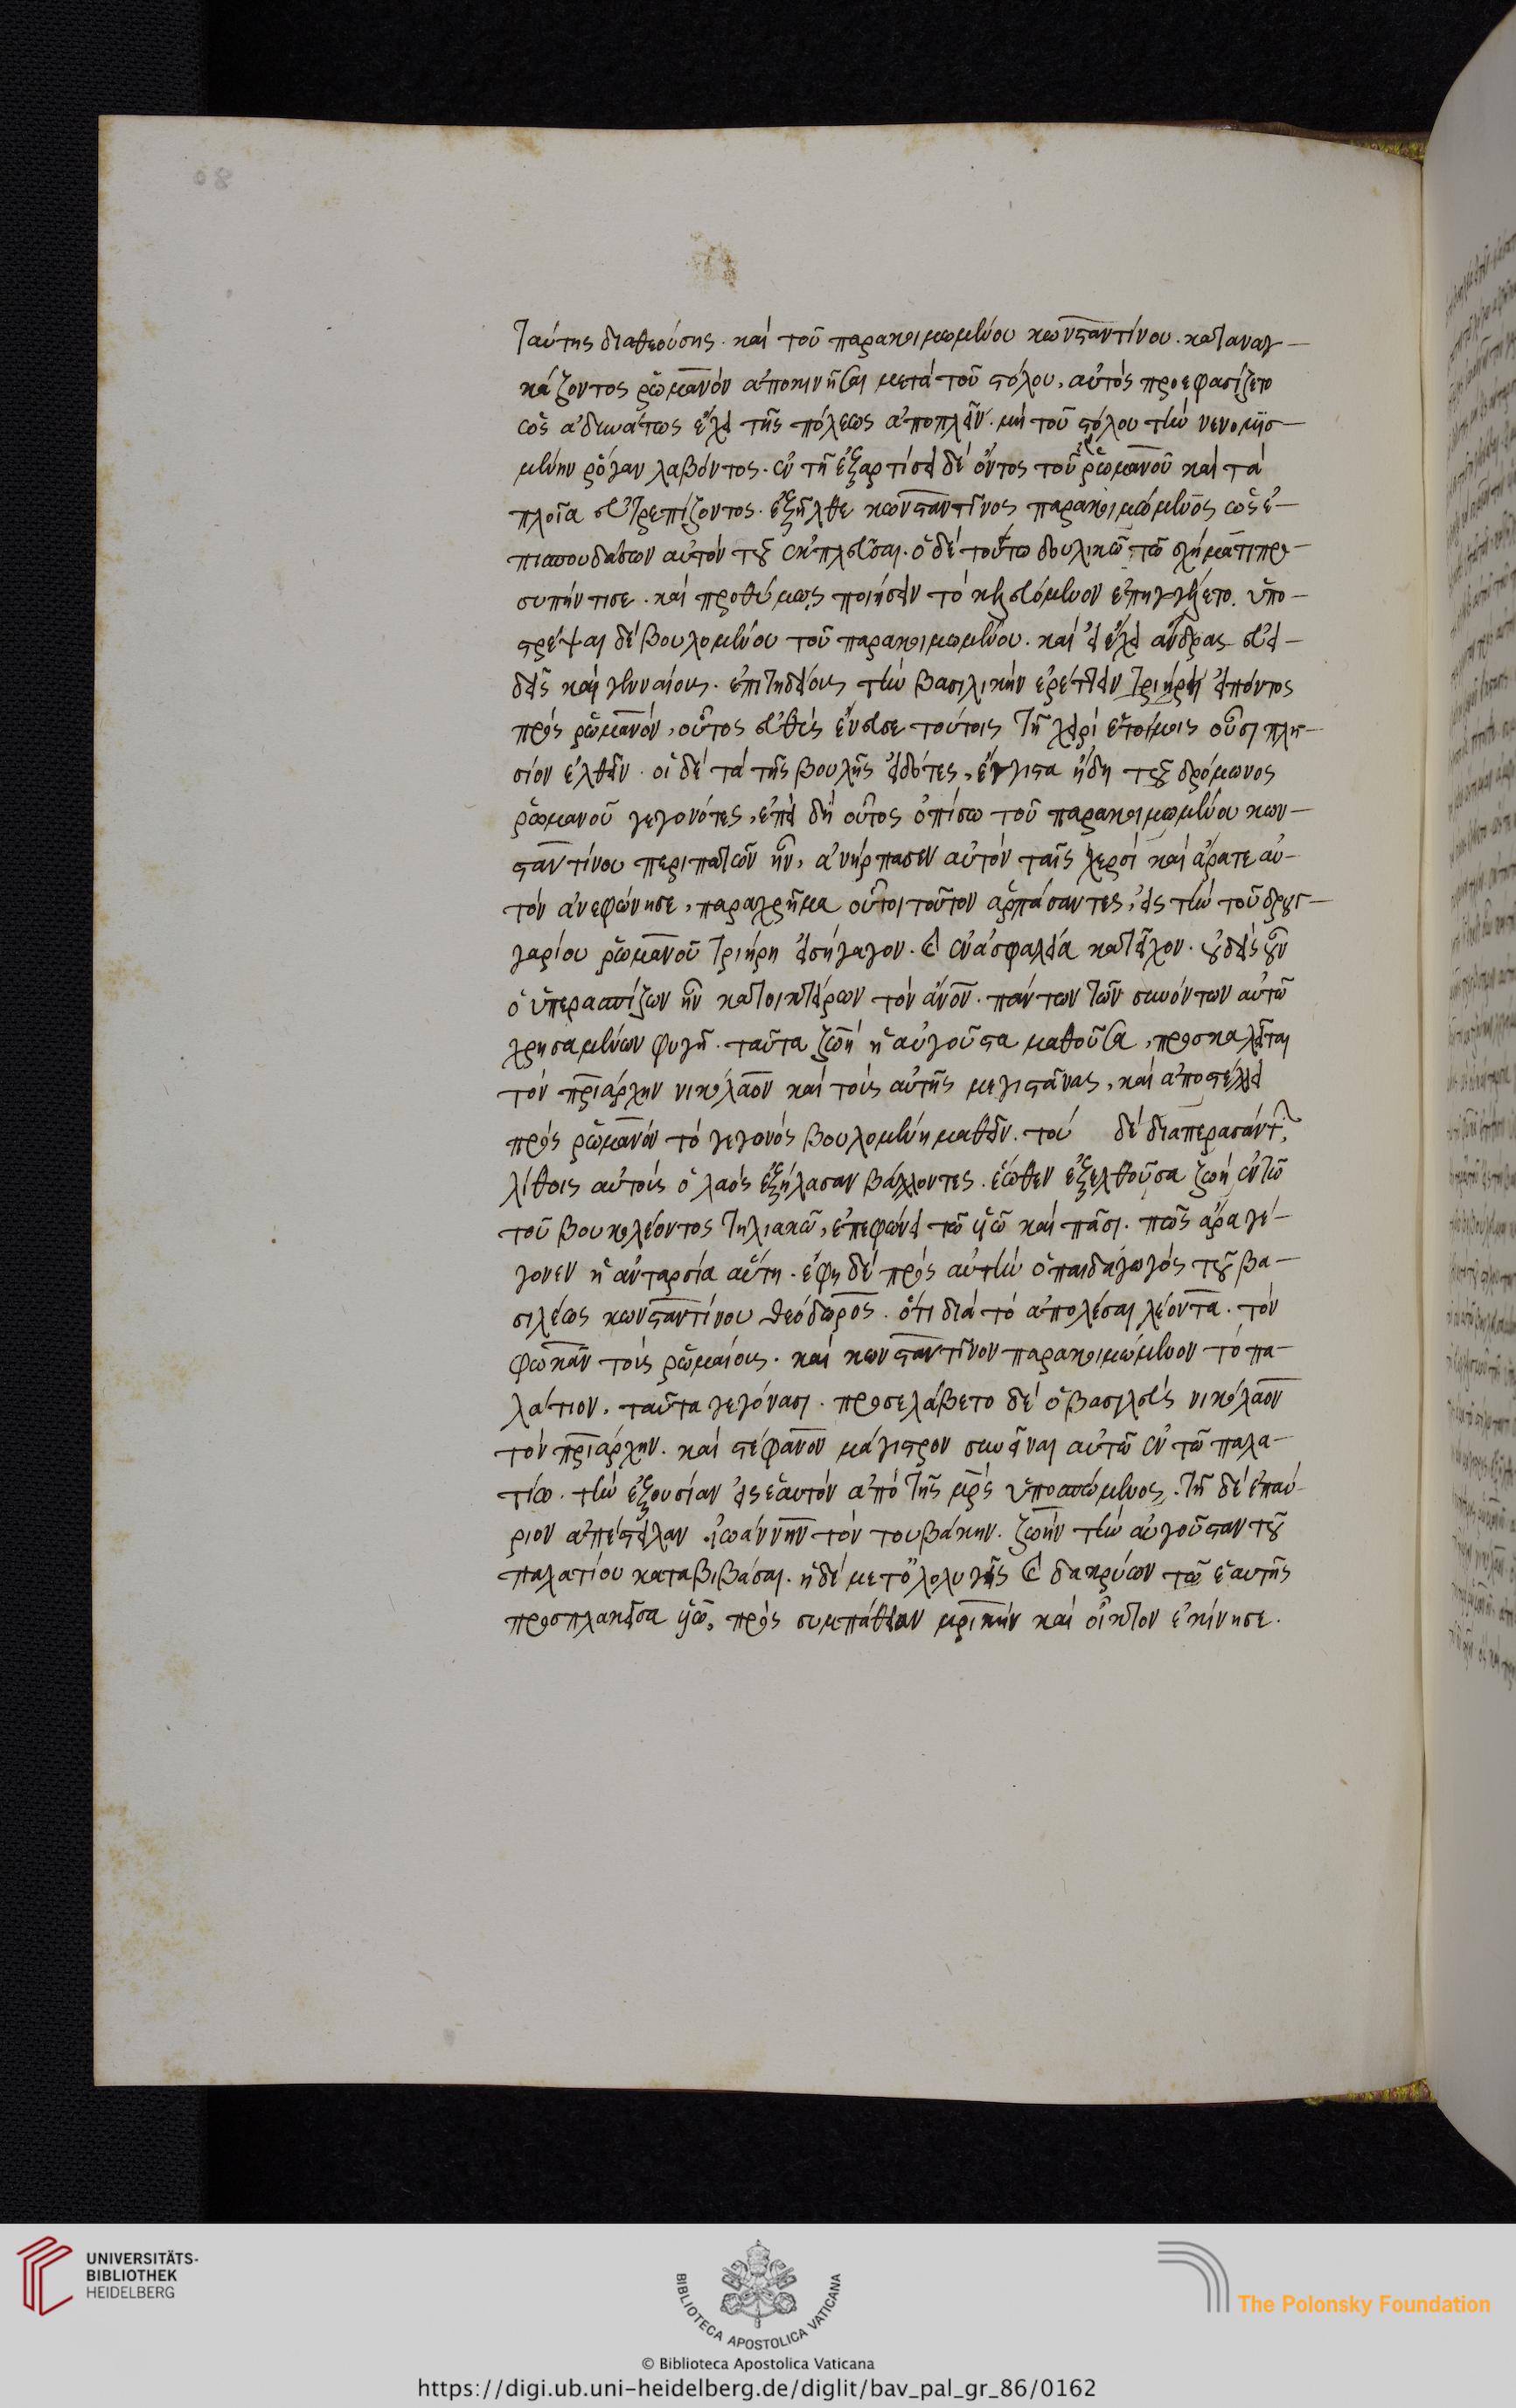 ταύτης διαθεούσης. καὶ τοῦ παρακοιμωμένου κωνσταντίνου. καταναγ-
κάζοντος ῥωμανὸν ἀποκινῆσαι μετὰ τοῦ στόλου, αὐτὸς προεφασίζετο
ὡς ἀδυνάτως ἔχει τῆς πόλεως ἀποπλεῖν. μὴ τοῦ στόλου τὴν νενομισ-
μένην ῥόγαν λαβόντος. ἐν τῇ ἐξαρτίσει δὲ ὄντος τοῦ ῥωμανοῦ καὶ τὰ
πλοῖα εὐτρεπίζοντος. ἐξῆλθε κωνσταντῖνος παρακοιμώμενος ὡς ἐ-
πισπουδάζων αὐτὸν τοῦ ἐκπλεῦσαι. ὁ δὲ τούτω δουλικῶ τῶ σχήματι προ-
συπήντισε. καὶ προθύμως ποιήσειν τὸ κελευόμενον ἐπηγγέλλετο. ὑπο-
στρέψαι δὲ βουλομένου τοῦ παρακοιμωμένου. καὶ εἰ ἔχει ἄνδρας εὐει-
δεῖς καὶ γενναίους. ἐπιτηδείους τὴν βασιλικὴν ἐρέττειν τριήρη εἰπόντος
πρὸς ῥωμανόν, οὗτος εὐθὺς ἔνευσε τούτοις τῇ χειρὶ ἑτοίμοις οὖσι πλη-
σίον ἐλθεῖν. οἱ δὲ τὰ τῆς βουλῆς εἰδότες, ἔγγιστα ἤδη τοῦ δρόμωνος
ῥωμανοῦ γεγονότες, ἐπεὶ δὴ οὗτος ὀπίσω τοῦ παρακοιμωμένου κων-
σταντίνου περιπατῶν ἦν, ἀνήρπασεν αὐτὸν ταῖς χερσὶ καὶ ἄρατε αὐ-
τὸν ἀνεφώνησε, παραχρῆμα οὗτοι τοῦτον ἁρπάσαντες, εἰς τὴν τοῦ δρουγ-
γαρίου ῥωμανοῦ τριήρη εἰσήγαγον. καὶ ἐν ἀσφαλεία κατεῖχον. οὐδεὶς οὖν
ὁ ὑπερασπίζων ἦν κατοικτείρων τὸν ἄνον. πάντων τῶν συνόντων αὐτῶ
χρησαμένων φυγῇ. ταῦτα ζωὴ ἡ αὐγοῦστα μαθοῦσα, προσκαλεῖται
τὸν πριάρχην νικόλαον καὶ τοὺς αὐτῆς μεγιστάνας, καὶ ἀποστέλλει
πρὸς ῥωμανὸν τὸ γεγονὸς βουλομένη μαθεῖν. τοὺ δὲ διαπερασάντ
λίθοις αὐτοὺς ὁ λαὸς ἐξήλασαν βάλλοντες. ἕωθεν ἐξελθοῦσα ζωὴ ἐν τῶ
τοῦ βουκολέοντος ἡλιακῶ, ἐπεφώνει τῶ υἱῶ καὶ πᾶσι. πῶς ἄρα γέ-
γονεν ἡ ἀνταρσία αὕτη. ἔφη δὲ πρὸς αὐτὴν ὁ παιδαγωγὸς τοῦ βα-
σιλέως κωνσταντίνου θεόδωρος. ὅτι διὰ τὸ ἀπολέσαι λέοντα. τὸν
φωκᾶν τοὺς ῥωμαίους. καὶ κωνσταντῖνον παρακοιμώμενον τὸ πα-
λάτιον, ταῦτα γεγόνασι. προσελάβετο δὲ ὁ βασιλεὺς νικόλαον
τὸν πριάρχην. καὶ στέφανον μάγιστρον συνεῖναι αὐτῶ ἐν τῶ παλα-
τίω. τὴν ἐξουσίαν εἰς ἑαυτὸν ἀπὸ τῆς μρς ὑποσπώμενος. τῇ δὲ ἐπαύ-
ριον ἀπέστειλαν ἰωάννην τὸν τουβάκην. ζωὴν τὴν αὐγοῦσταν τοῦ
παλατίου καταβιβάσαι. ἡ δὲ μετ᾽ ὀλολυγῆς καὶ δακρύων τῶ ἑαυτῆς
προσπλακεῖσα υἱῶ, πρὸς συμπάθειαν μρικὴν καὶ οἶκτον ἐκίνησε.
80
UNIVERSITÄTS-
BIBLIOTHEK
HEIDELBERG
BIBLIOTECA APOSTOLICA VATICANA
The Polonsky Foundation
© Biblioteca Apostolica Vaticana
https://digi.ub.uni-heidelberg.de/diglit/bav_pal_gr_86/0162